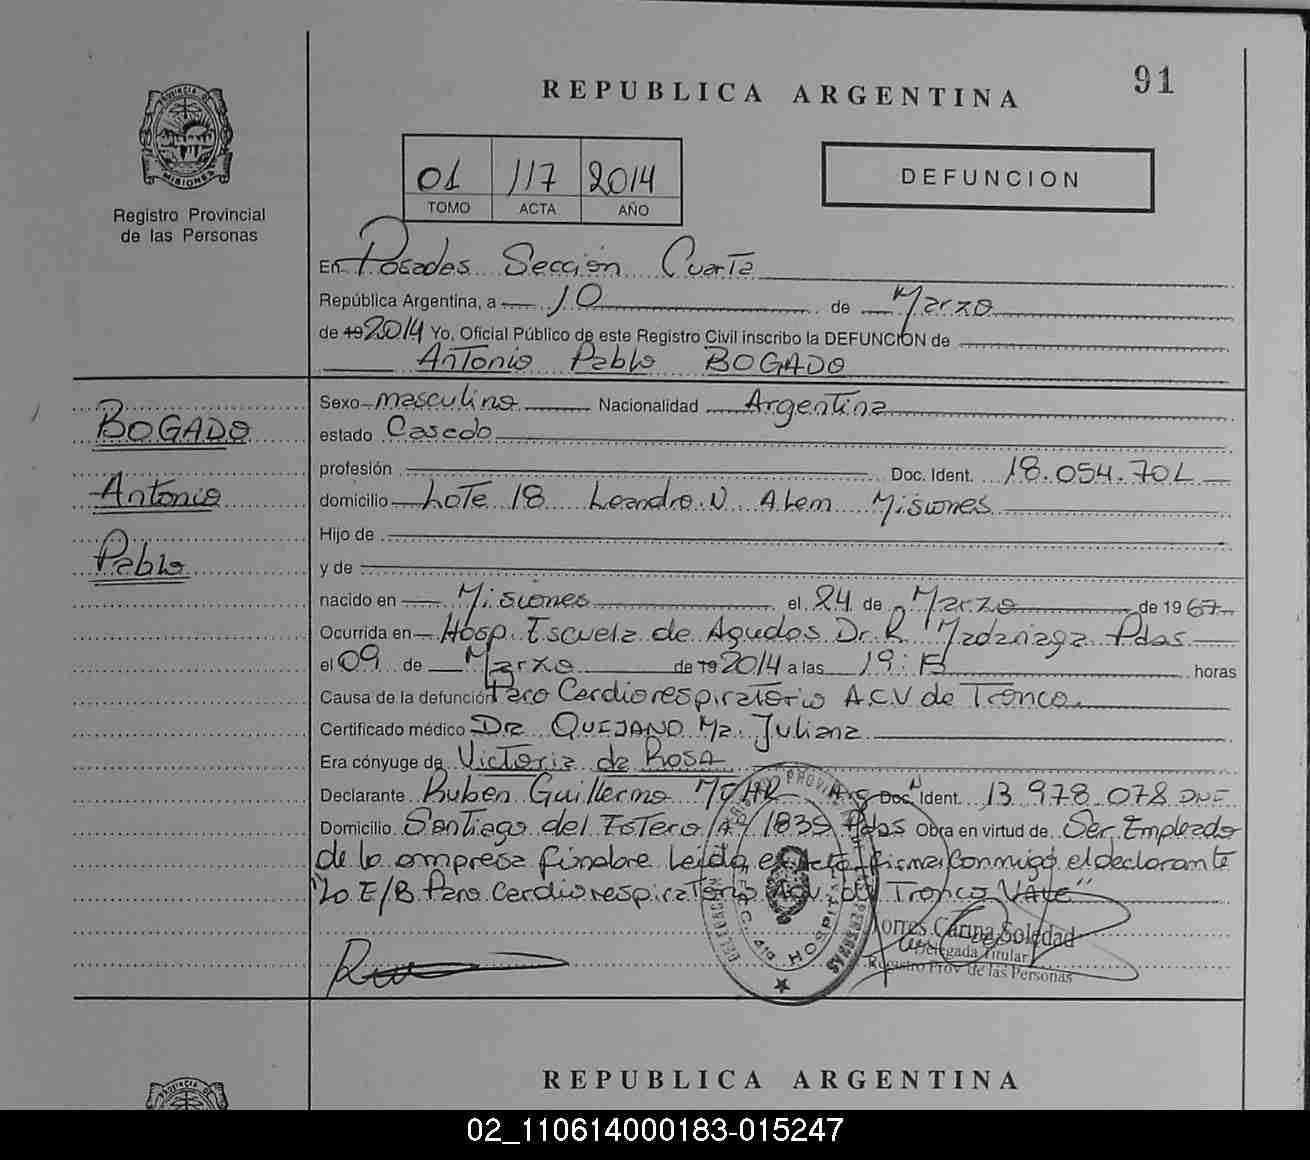 91
REPUBLICA ARGENTINA
PROVINCIA DE
MISIONES
Registro Provincial
de las Personas
01 117 2014
TOMO ACTA AÑO
DEFUNCION
En Posadas Sección Cuarta
República Argentina, a 10 de Marzo
de 19 2014 Yo, Oficial Público de este Registro Civil inscribo la DEFUNCION de
Antonio Pablo BOGADO
BOGADO
Antonio
Pablo
Sexo masculino Nacionalidad Argentina
estado Casado
profesión Doc. Ident. 18.054.701
domicilio Lote 18 Leandro N. Alem Misiones
Hijo de
y de
nacido en Misiones el 24 de Marzo de 1967
Ocurrida en Hosp. Escuela de Agudos Dr. R. Madariaga Pdas
el 09 de Marzo de 19 2014 a las 19:15 horas
Causa de la defunción Paro Cardiorespiratorio A.C.V de Tronco
Certificado médico Dra QUIJANO Ma. Juliana
Era cónyuge de Victoria da ROSA
Declarante Ruben Guillermo MOHR Arg Doc. Ident. 13.978.078 DNI
Domicilio Santiago del Estero 1835 Pdas Obra en virtud de Ser Empleado
de la empresa fúnebre Leída el Acta firma conmigo el declarante
"Lo E/B Paro Cardiorespiratorio Acv. de Tronco VALE"
Torres Carina Soledad
Delegada Titular
Registro Prov de las Personas
DELEGACION
HOSPITAL
REPUBLICA ARGENTINA
PROVINCIA DE
02_110614000183-015247